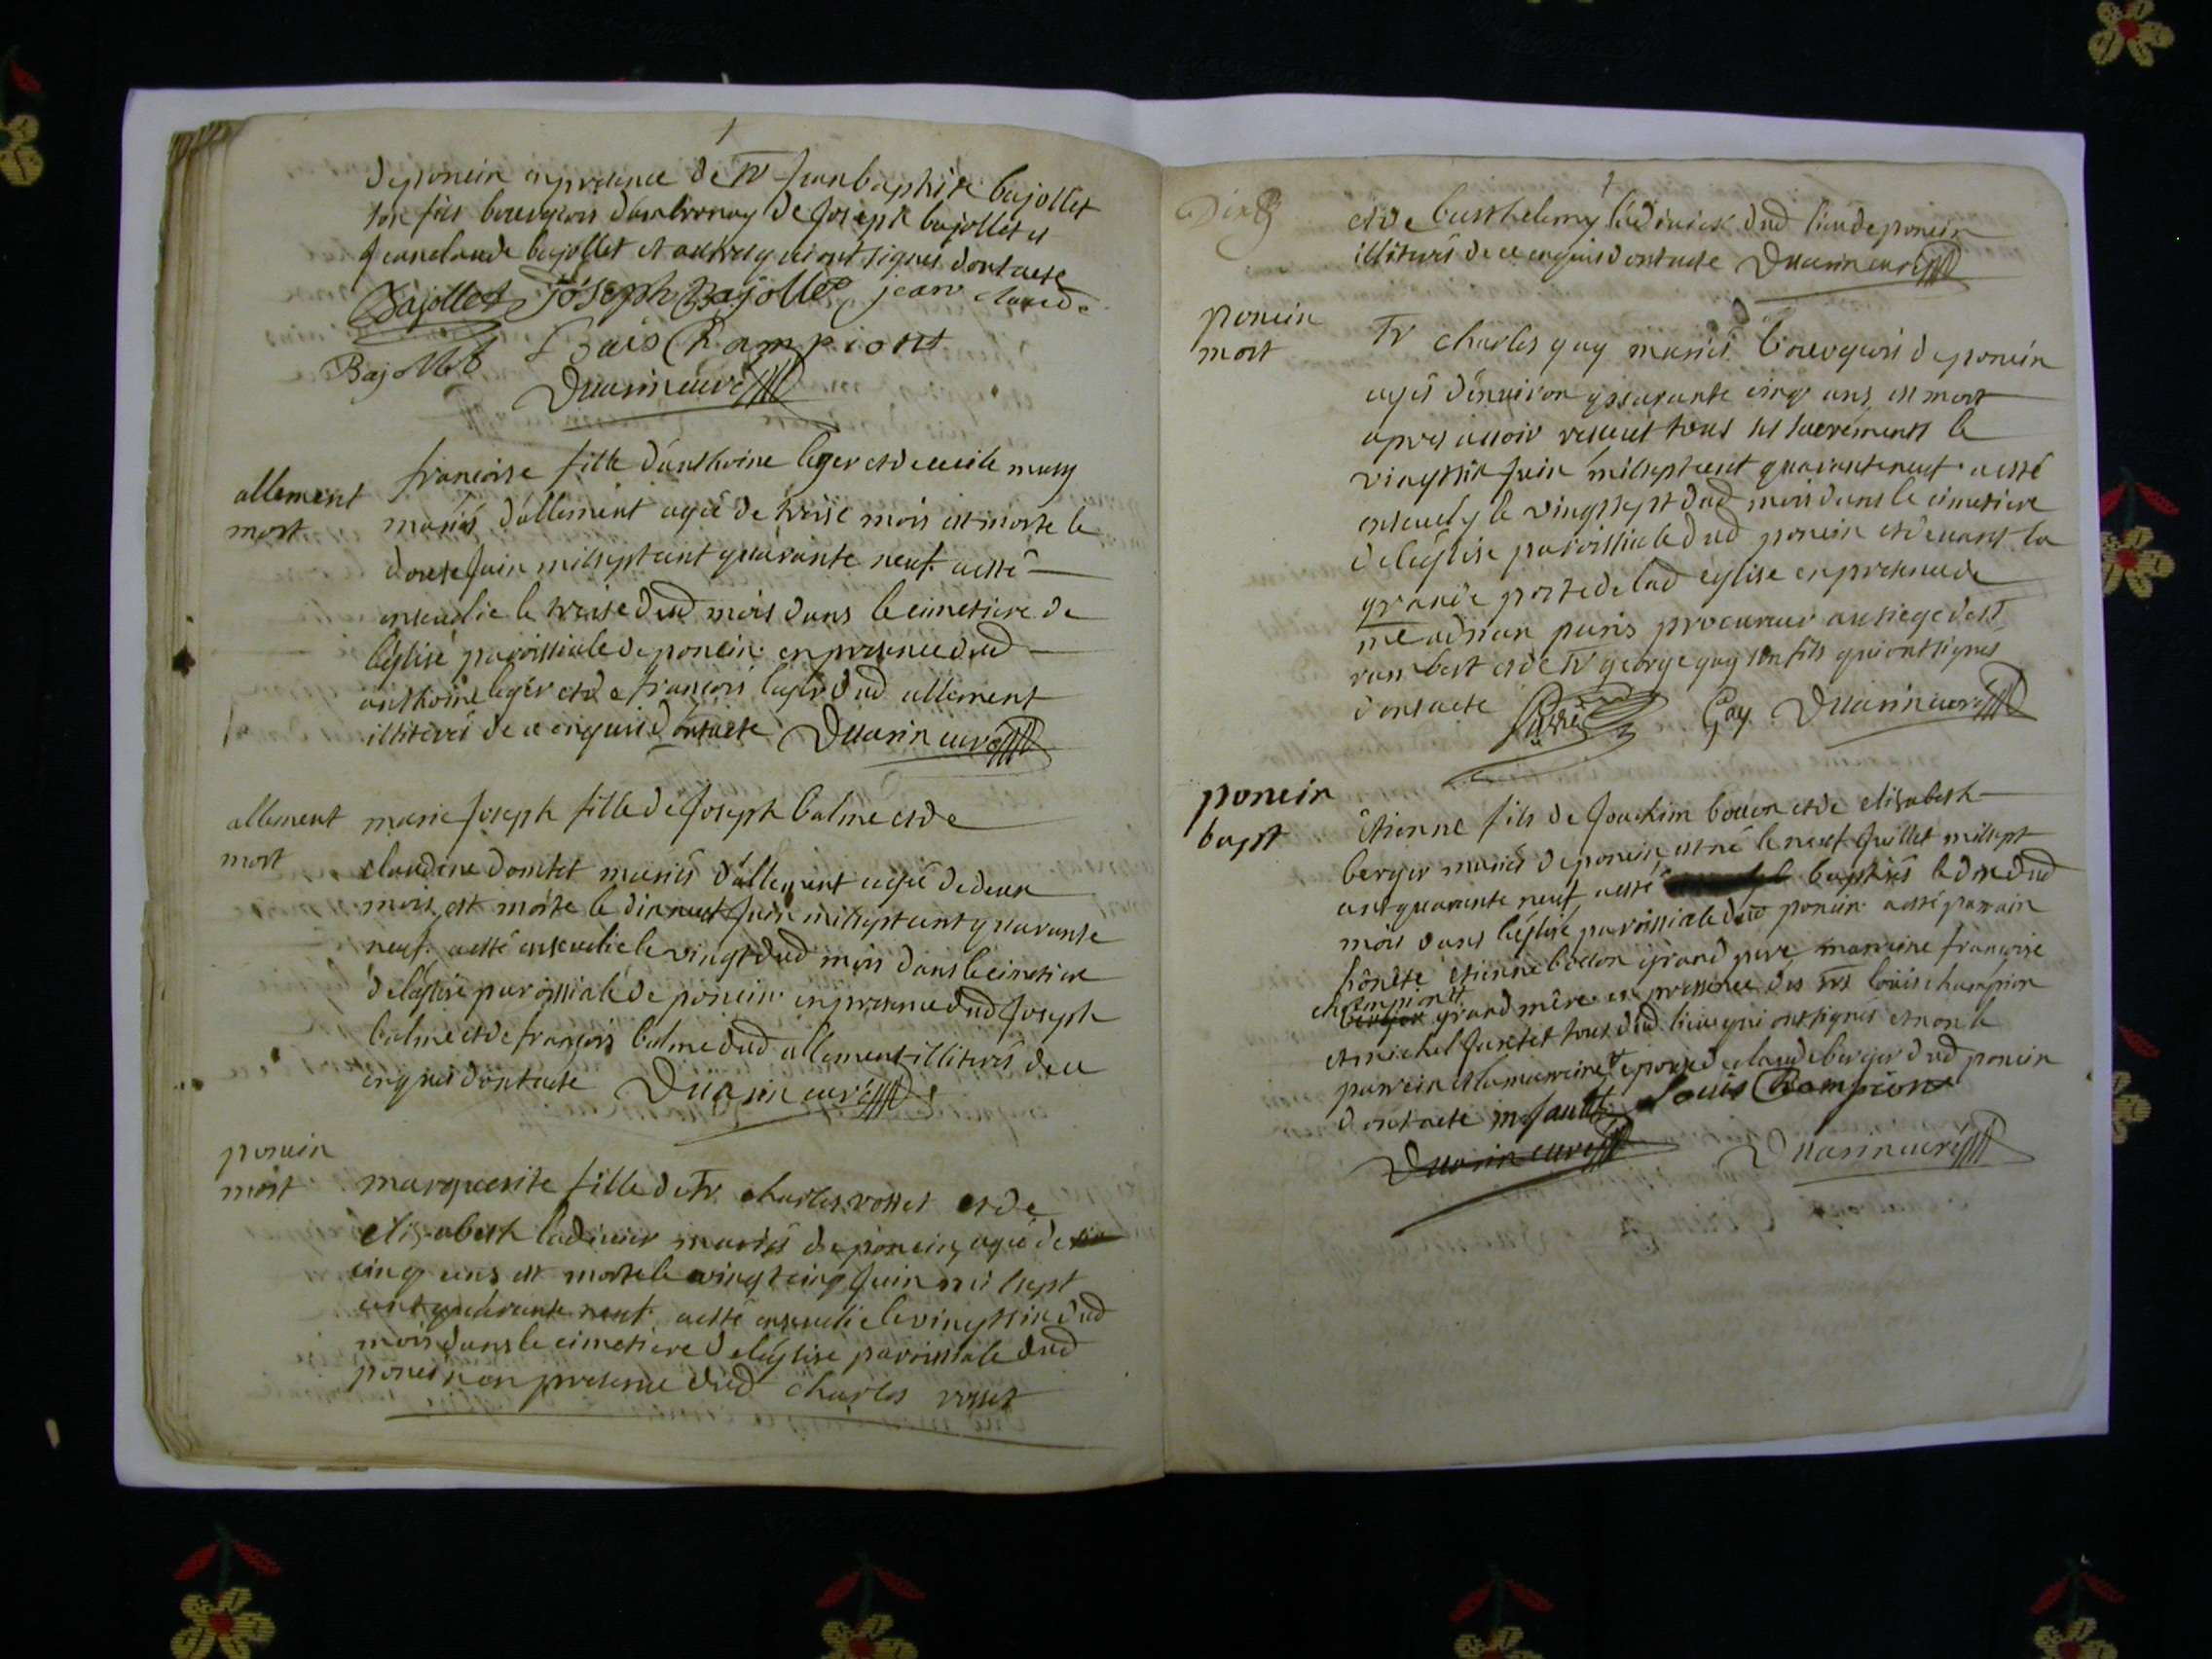 deponcin enpresence de Sr Jeanbaptiste bajollet
son fils bourgeois dambronay de Joseph bajollet et
Jeanclaude bajollet et autres qui ont signes dontacte
Bajollet Joseph Bajollet jean claude
Bajollet Louis Champions
Duarin curé
allement
mort
francoise fille danthoine leger et de cecile
mariés dallement agée de treise mois est morte le
douse Juin millseptcent quarante neuf a esté
ensevelie le treise dud mois dans le cimetiere de
léglise paroissiale de poncin en presence dud
anthoine leger et de francois leger dud allement
illiterés de ce enquis dontacte Duarin curé
allement
mort
marie Joseph fille de Joseph balme et de
claudine domtet mariés dallement agée de deux
mois est morte le dixneuf Juin millseptcent quarante
neuf a esté ensevelie le vingt dud mois dans le cimetiere
deléglise paroissiale de poncin en presence dud Joseph
balme et de françois balme dud allement illiterés de ce
enquis dontacte Duarin curé
poncin
mort
marguerite fille de Sr charles rosset et de
elizabeth ladinier mariés de poncin agée de
cinq ans est morte le vingtcinq Juin mil sept
cent quarante neuf a esté ensevelie le vingtsix dud
mois dans le cimetiere deléglise paroissiale dud
poncin en presence dud charles rosset
et de barthelemy dud lieu de poncin
illiterés de ce enquis dontacte Duarin curé
poncin
mort
Sr charles gay mariés bourgeois deponcin
agés dénviron quarante cinq ans est mort
apres auoir receut tous les sacréments le
vingtsix Juin millseptcent quaranteneuf a esté
ensevely le vingtsept dud mois dans le cimetiere
deléglise paroissiale dud poncin et deuant la
grande porte de lad eglise en presence de
me adrian paris procureur au siege de st
rambert et de Sr george gay son fils qui ont signes
dontacte Gay Duarin curé
poncin
bapt
étienne fils de Joachim et de elizabeth
berger mariés deponcin est né le neuf Juillet millsept
cent quarante neuf a esté baptisés le dix dud
mois dans léglise paroissiale dud poncin a esté parrain
honéte etienne grand pere marraine françoise
championt
grand mére en presence des srs louis champion
et michel tous dud lieu qui ont signés et non le
parrein et la marreine epouse de claude berger dud poncin
dontacte Louis Champion
Duarin curé Duarin curé